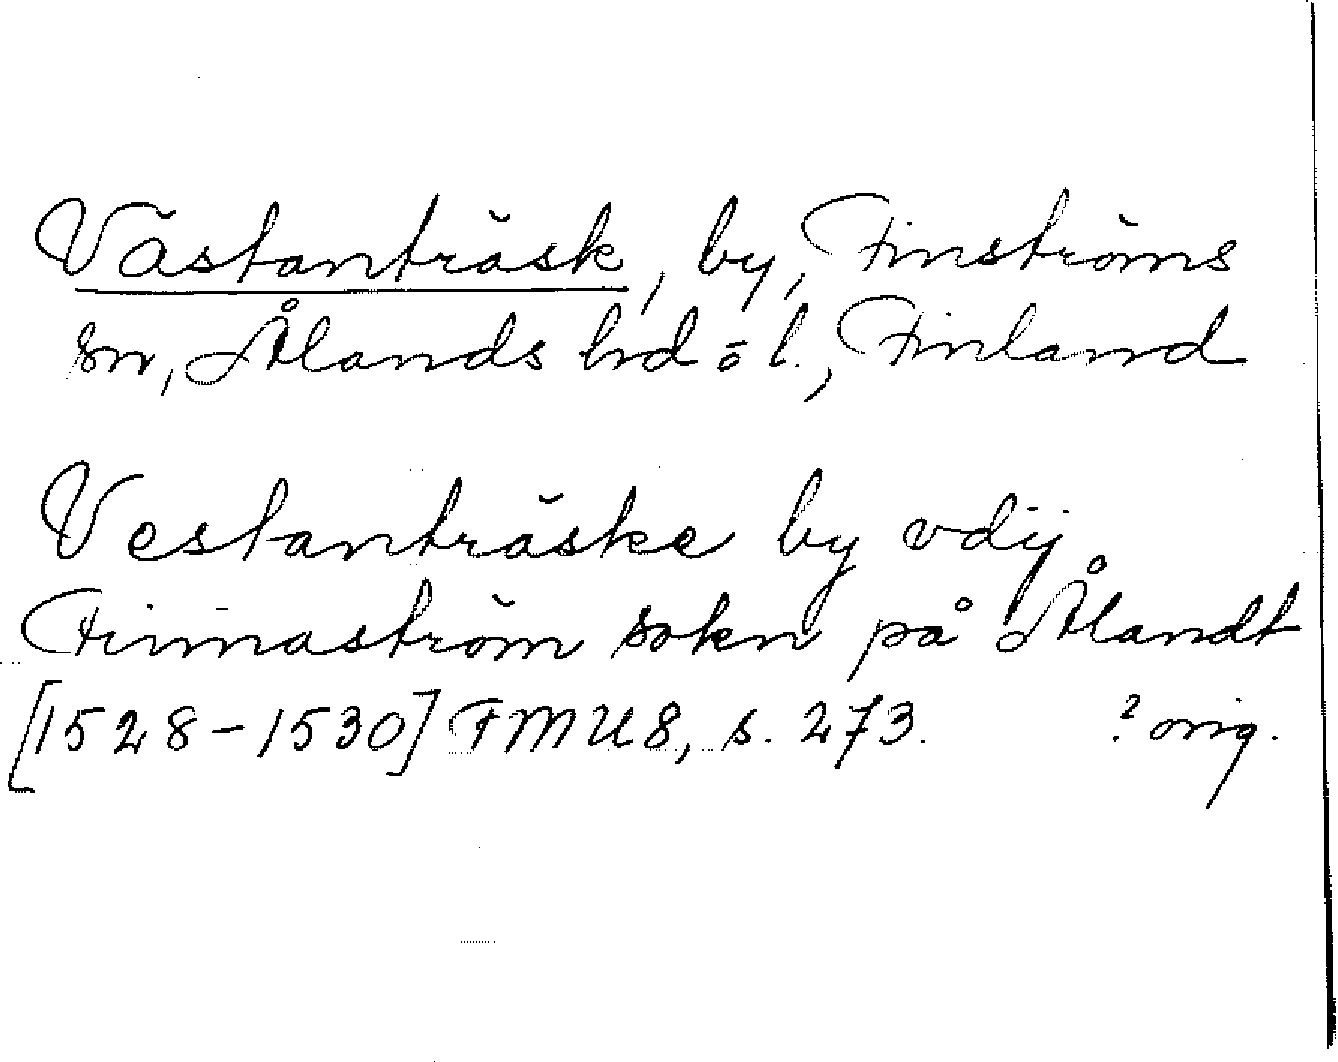 Västanträsk, by, Finströms
sn, Ålands hd o l., Finland
Vestanträske by vdij
Finnaström sokn på Ålandt
[1528-1530] FMU8, s. 273. ? orig.